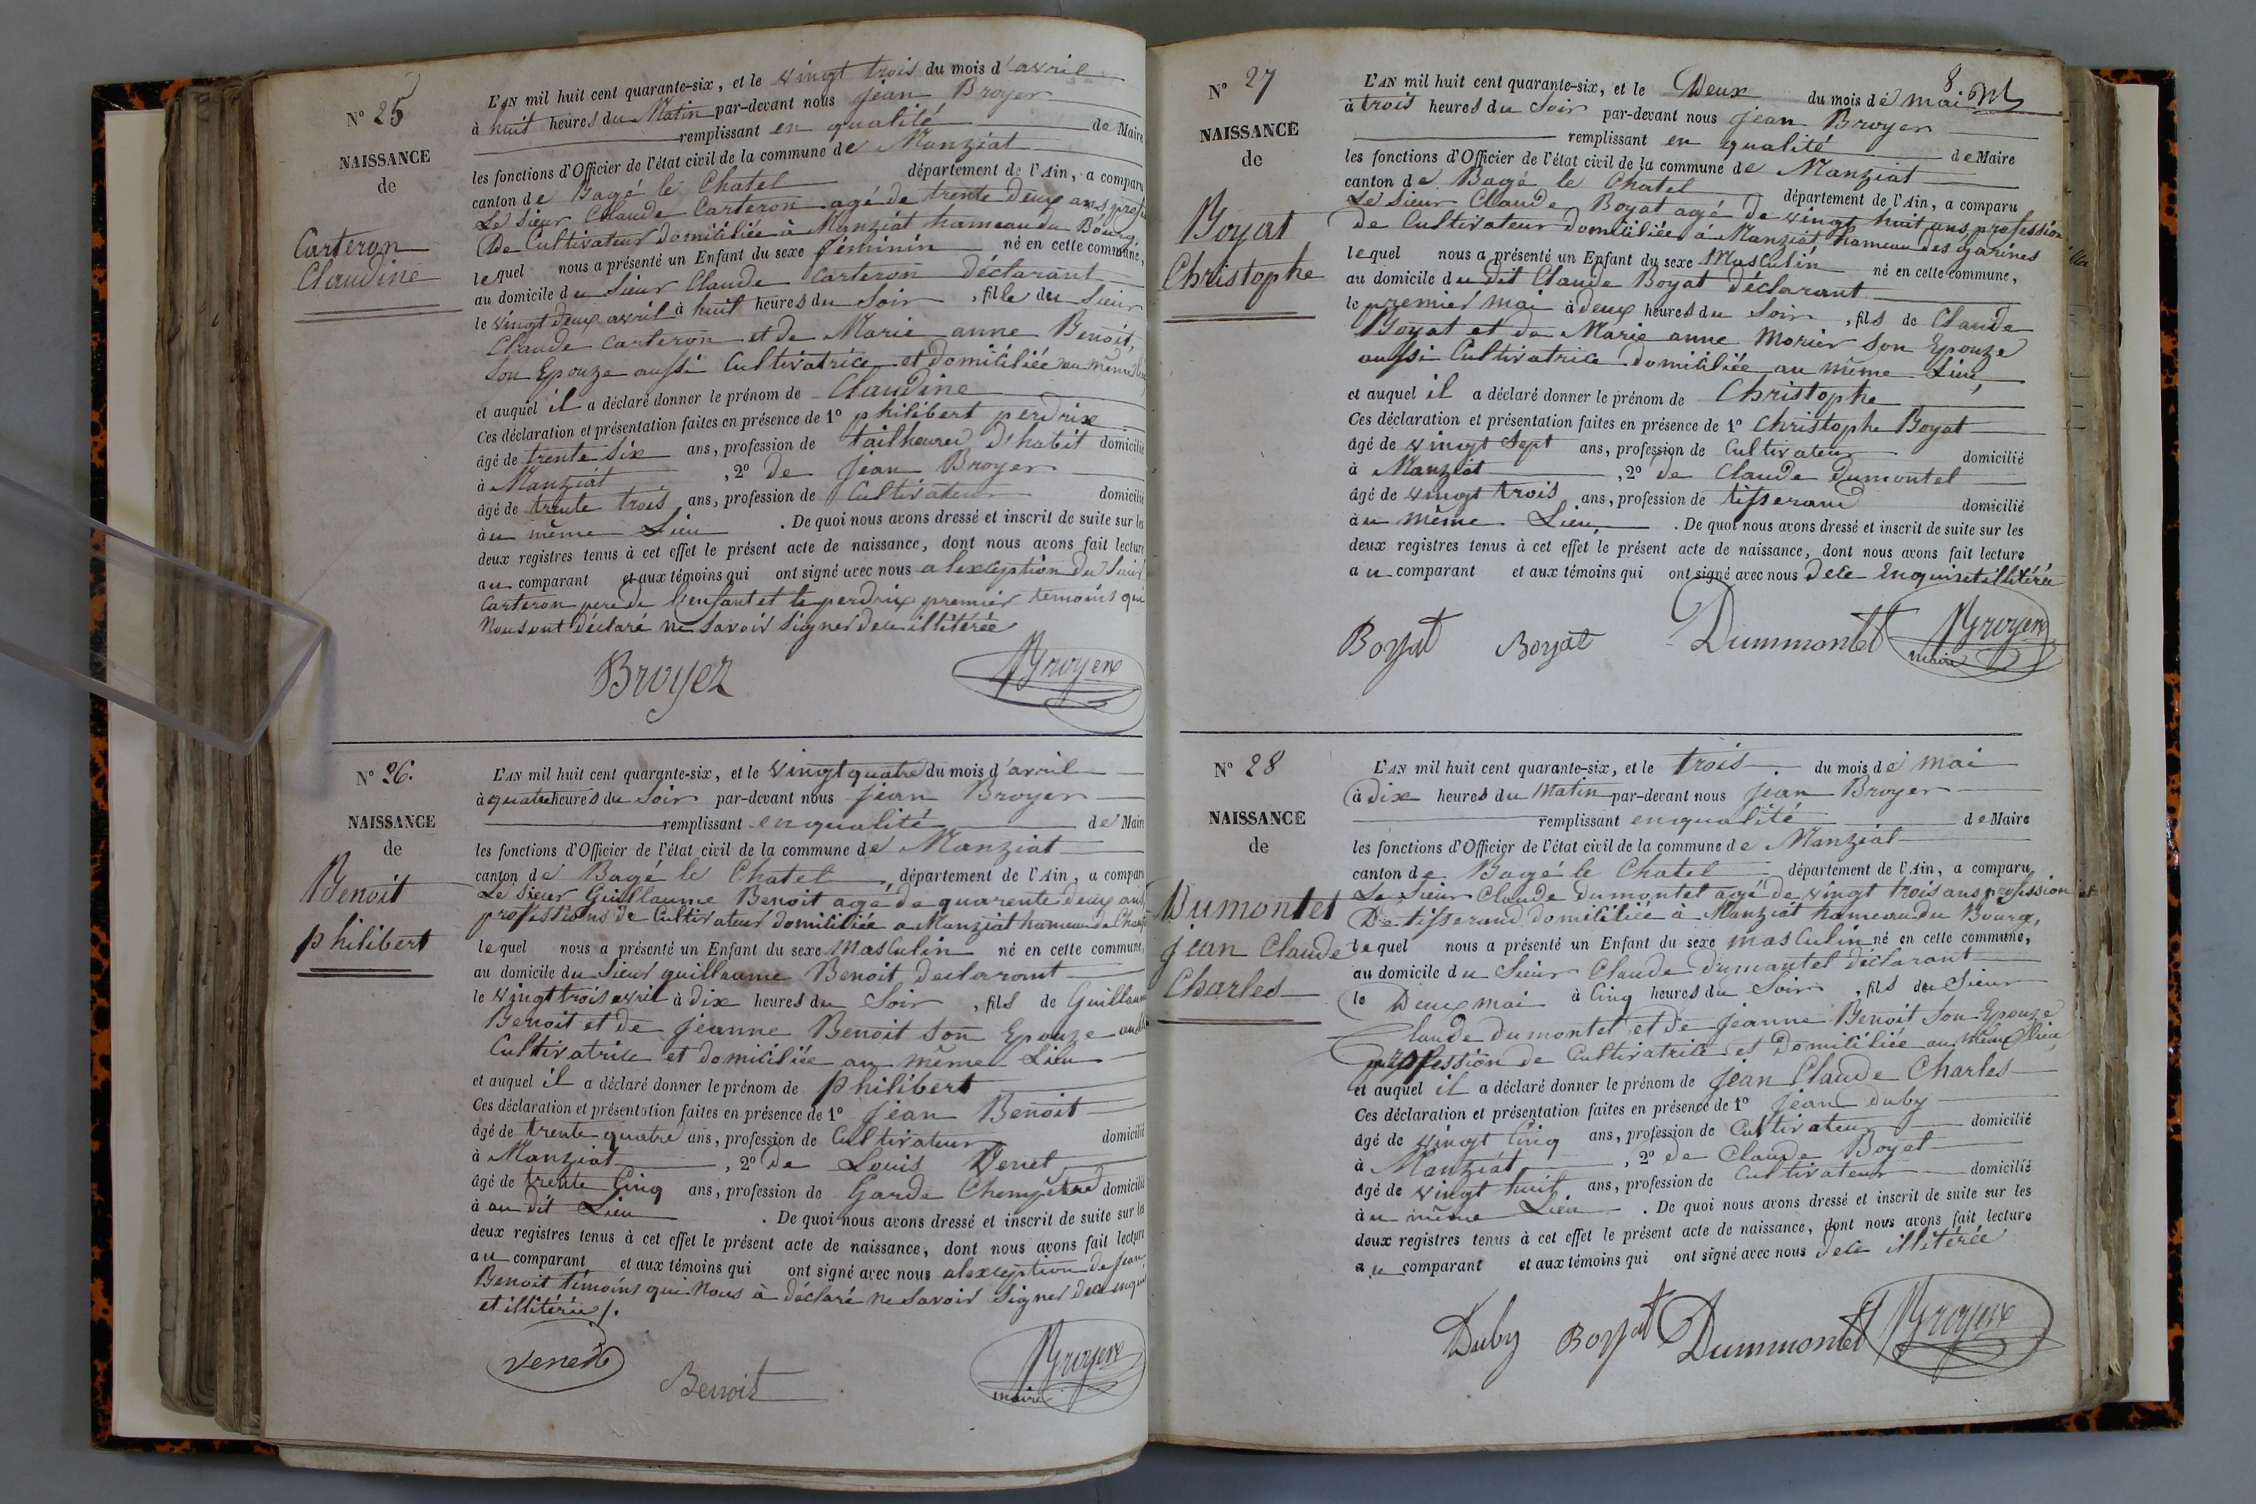 N° 25
NAISSANCE
de
Carteron
Claudine
L'AN mil huit cent quarante-six, et le vingt trois du mois d'avril
à huit heures du Matin par-devant nous jean Broyer
remplissant en qualité de Maire
les fonctions d'Officier de l'état civil de la commune de Manziat
canton de Bagé le Chatel département de l'Ain, a comparu
Le sieur Claude Carteron agé de trente deux ans profe
De Cultivateur domicilièe à Manziat hameau du Bourg,
lequel nous a présenté un Enfant du sexe féminin né en cette commune,
au domicile du Sieur Claude Carteron déclarant
le vingt deux avril à huit heures du Soir, fille du Sieur
Claude Carteron et de Marie anne Benoit,
son Epouze aussi Cultivatrice et domicilièe au même lieu
et auquel il a déclaré donner le prénom de Claudine
Ces déclaration et présentation faites en présence de 1° philibert perdrix
âgé de trente six ans, profession de tailheurd d'habit domicilié
à Manziat, 2° de Jean Broyer
âgé de trente trois ans, profession de Cultivateur domicilié
à u même Lieu. De quoi nous avons dressé et inscrit de suite sur les
deux registres tenus à cet effet le présent acte de naissance, dont nous avons fait lecture
au comparant et aux témoins qui ont signé avec nous a lexception du
Carteron pere de l'enfant et le perdrix premier temoins qui
Nous ont déclaré ne savoir signer de ce illitérée
Broyer Broyer
N° 26.
NAISSANCE
de
Benoit
philibert
L'AN mil huit cent quarante-six, et le vingt quatre du mois d'avril
à quatre heures du Soir par-devant nous jean Broyer
remplissant en qualité de Maire
les fonctions d'Officier de l'état civil de la commune de Manziat
canton de Bage le Chatel, département de l'Ain, a comparu
Le sieur Guillaume Benoit agé de quarente deux ans
professions de Cultivateur domicilièe a Manziat hameau de
lequel nous a présenté un Enfant du sexe Masculin né en cette commune,
au domicile du Sieur guillaume Benoit declarant
le vingt trois avril à dix heures du Soir, fils de Guillaume
Benoit et de Jeanne Benoit son Epouze aussi
Cultivatrice et domicilièe au même Lieu
et auquel il a déclaré donner le prénom de philibert
Ces déclaration et présentation faites en présence de 1° Jean Benoit
âgé de trente quatre ans, profession de Cultivateur domicilié
à Manziat, 2° de Louis Venet
âgé de trente Cinq ans, profession de Garde Champêtre domicilié
à au dit Lieu. De quoi nous avons dressé et inscrit de suite sur les
deux registres tenus à cet effet le présent acte de naissance, dont nous avons fait lecture
au comparant et aux témoins qui ont signé avec nous alexception de Jean
Benoit témoins qui Nous à déclaré ne savoir signer de ce enquis
et illitérée /.
Venet Benoit Broyer
maire
8
N° 27
NAISSANCE
de
Boyat
Christophe
L'AN mil huit cent quarante-six, et le Deux du mois de mai
à trois heures du Soir par-devant nous Jean Broyer
remplissant en qualité de Maire
les fonctions d'Officier de l'état civil de la commune de Manziat
canton de Bagé le Chatel département de l'Ain, a comparu
Le Sieur Claude Boyat agé de vingt huit ans profession
de Cultivateur domicilièe á Manziat hameau des garines
lequel nous a présenté un Enfant du sexe Masculin né en cette commune,
au domicile du dit Claude Boyat déclarant
le premier mai à deux heures du Soir, fils de Claude
Boyat et de Marie anne Morier son Epouze
aussi Cultivatrice domicilièe au même Lieu,
et auquel il a déclaré donner le prénom de Christophe
Ces déclaration et présentation faites en présence de 1° Christophe Boyat
âgé de vingt Sept ans, profession de Cultivateur domicilié
à Manziat, 2° de Claude Dumontet
âgé de vingt trois ans, profession de tisserand domicilié
à u même Lieu. De quoi nous avons dressé et inscrit de suite sur les
deux registres tenus à cet effet le présent acte de naissance, dont nous avons fait lecture
au comparant et aux témoins qui ont signé avec nous de ce enquis et illitérée
Boyat Boyat Dummontet Broyer
maire
N° 28
NAISSANCE
de
Dumontet
jean Claude
Charles
L'AN mil huit cent quarante-six, et le trois du mois de mai
à dix heures du Matin par-devant nous jean Broyer
remplissant en qualité de Maire
les fonctions d'Officier de l'état civil de la commune de Manziat
canton de Bagé le Chatel département de l'Ain, a comparu
Le Sieur Claude Dumontet agé de vingt trois ans profession
De tisserand domicilièe à Manziat hameau du Bourg,
lequel nous a présenté un Enfant du sexe masculin né en cette commune,
au domicile du Sieur Claude dumontet déclarant
le Deux mai à Cinq heures du Soir, fils du Sieur
Claude dumontet et de Jeanne Benoit son Epouze
profession de Cultivatrice et Domicilièe au même Lieu,
et auquel il a déclaré donner le prénom de Jean Claude Charles
Ces déclaration et présentation faites en présence de 1° Jean Duby
âgé de vingt Cinq ans, profession de Cultivateur domicilié
à Manziat, 2° de Claude Boyat
âgé de vingt huit ans, profession de Cultivateur domicilié
à u même Lieu. De quoi nous avons dressé et inscrit de suite sur les
deux registres tenus à cet effet le présent acte de naissance, dont nous avons fait lecture
au comparant et aux témoins qui ont signé avec nous de ce illitérée
Duby Boyat Dummontet Broyer